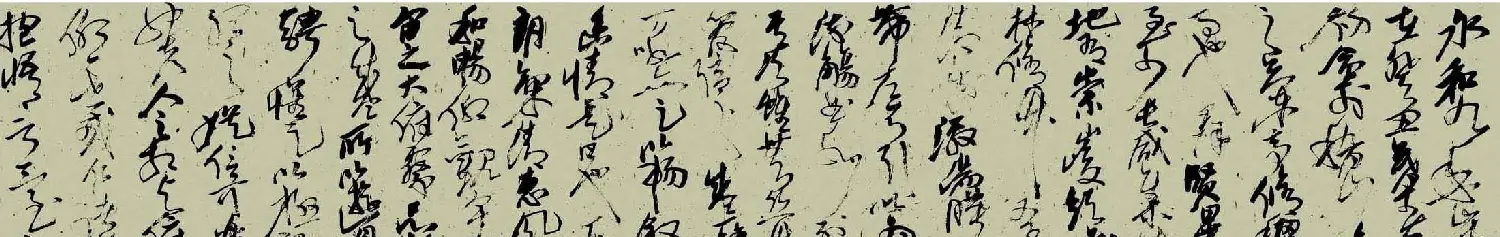 永和九年歲
在癸丑暮春
初會于稽山
之蘭亭脩禊
事也羣賢畢
至少長咸集
地有崇峻領
林脩竹又
清流激湍映
帶左右引以為
流觴曲水列
其次雖無絲竹
管弦之盛
詠亦足以暢敘
幽情是日也天
朗氣清惠風
和暢仰觀宇
宙之大俯察品
之盛所以遊目
騁懷足以極
聽之娛信可樂
夫人之相與俯
仰一世或取諸
抱悟言一室